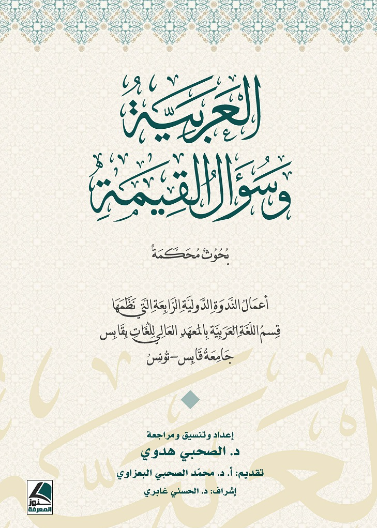 العَرَبِيَّة
وَسُؤَالُ القِيمَةِ
بُحُوثٌ مُحَكَّمَةٌ
أعمال الندوة الدولية الرابعة التي نظمها
قسم اللغة العربية بالمعهد العالي للغات بقابس
جامعة قابس - تونس
إعداد وتنسيق ومراجعة
د. الصحبي هدوي
تقديم: أ. د. محمّد الصحبي البعزاوي
إشراف: د. الحسني غابري
كنوز
المعرفة